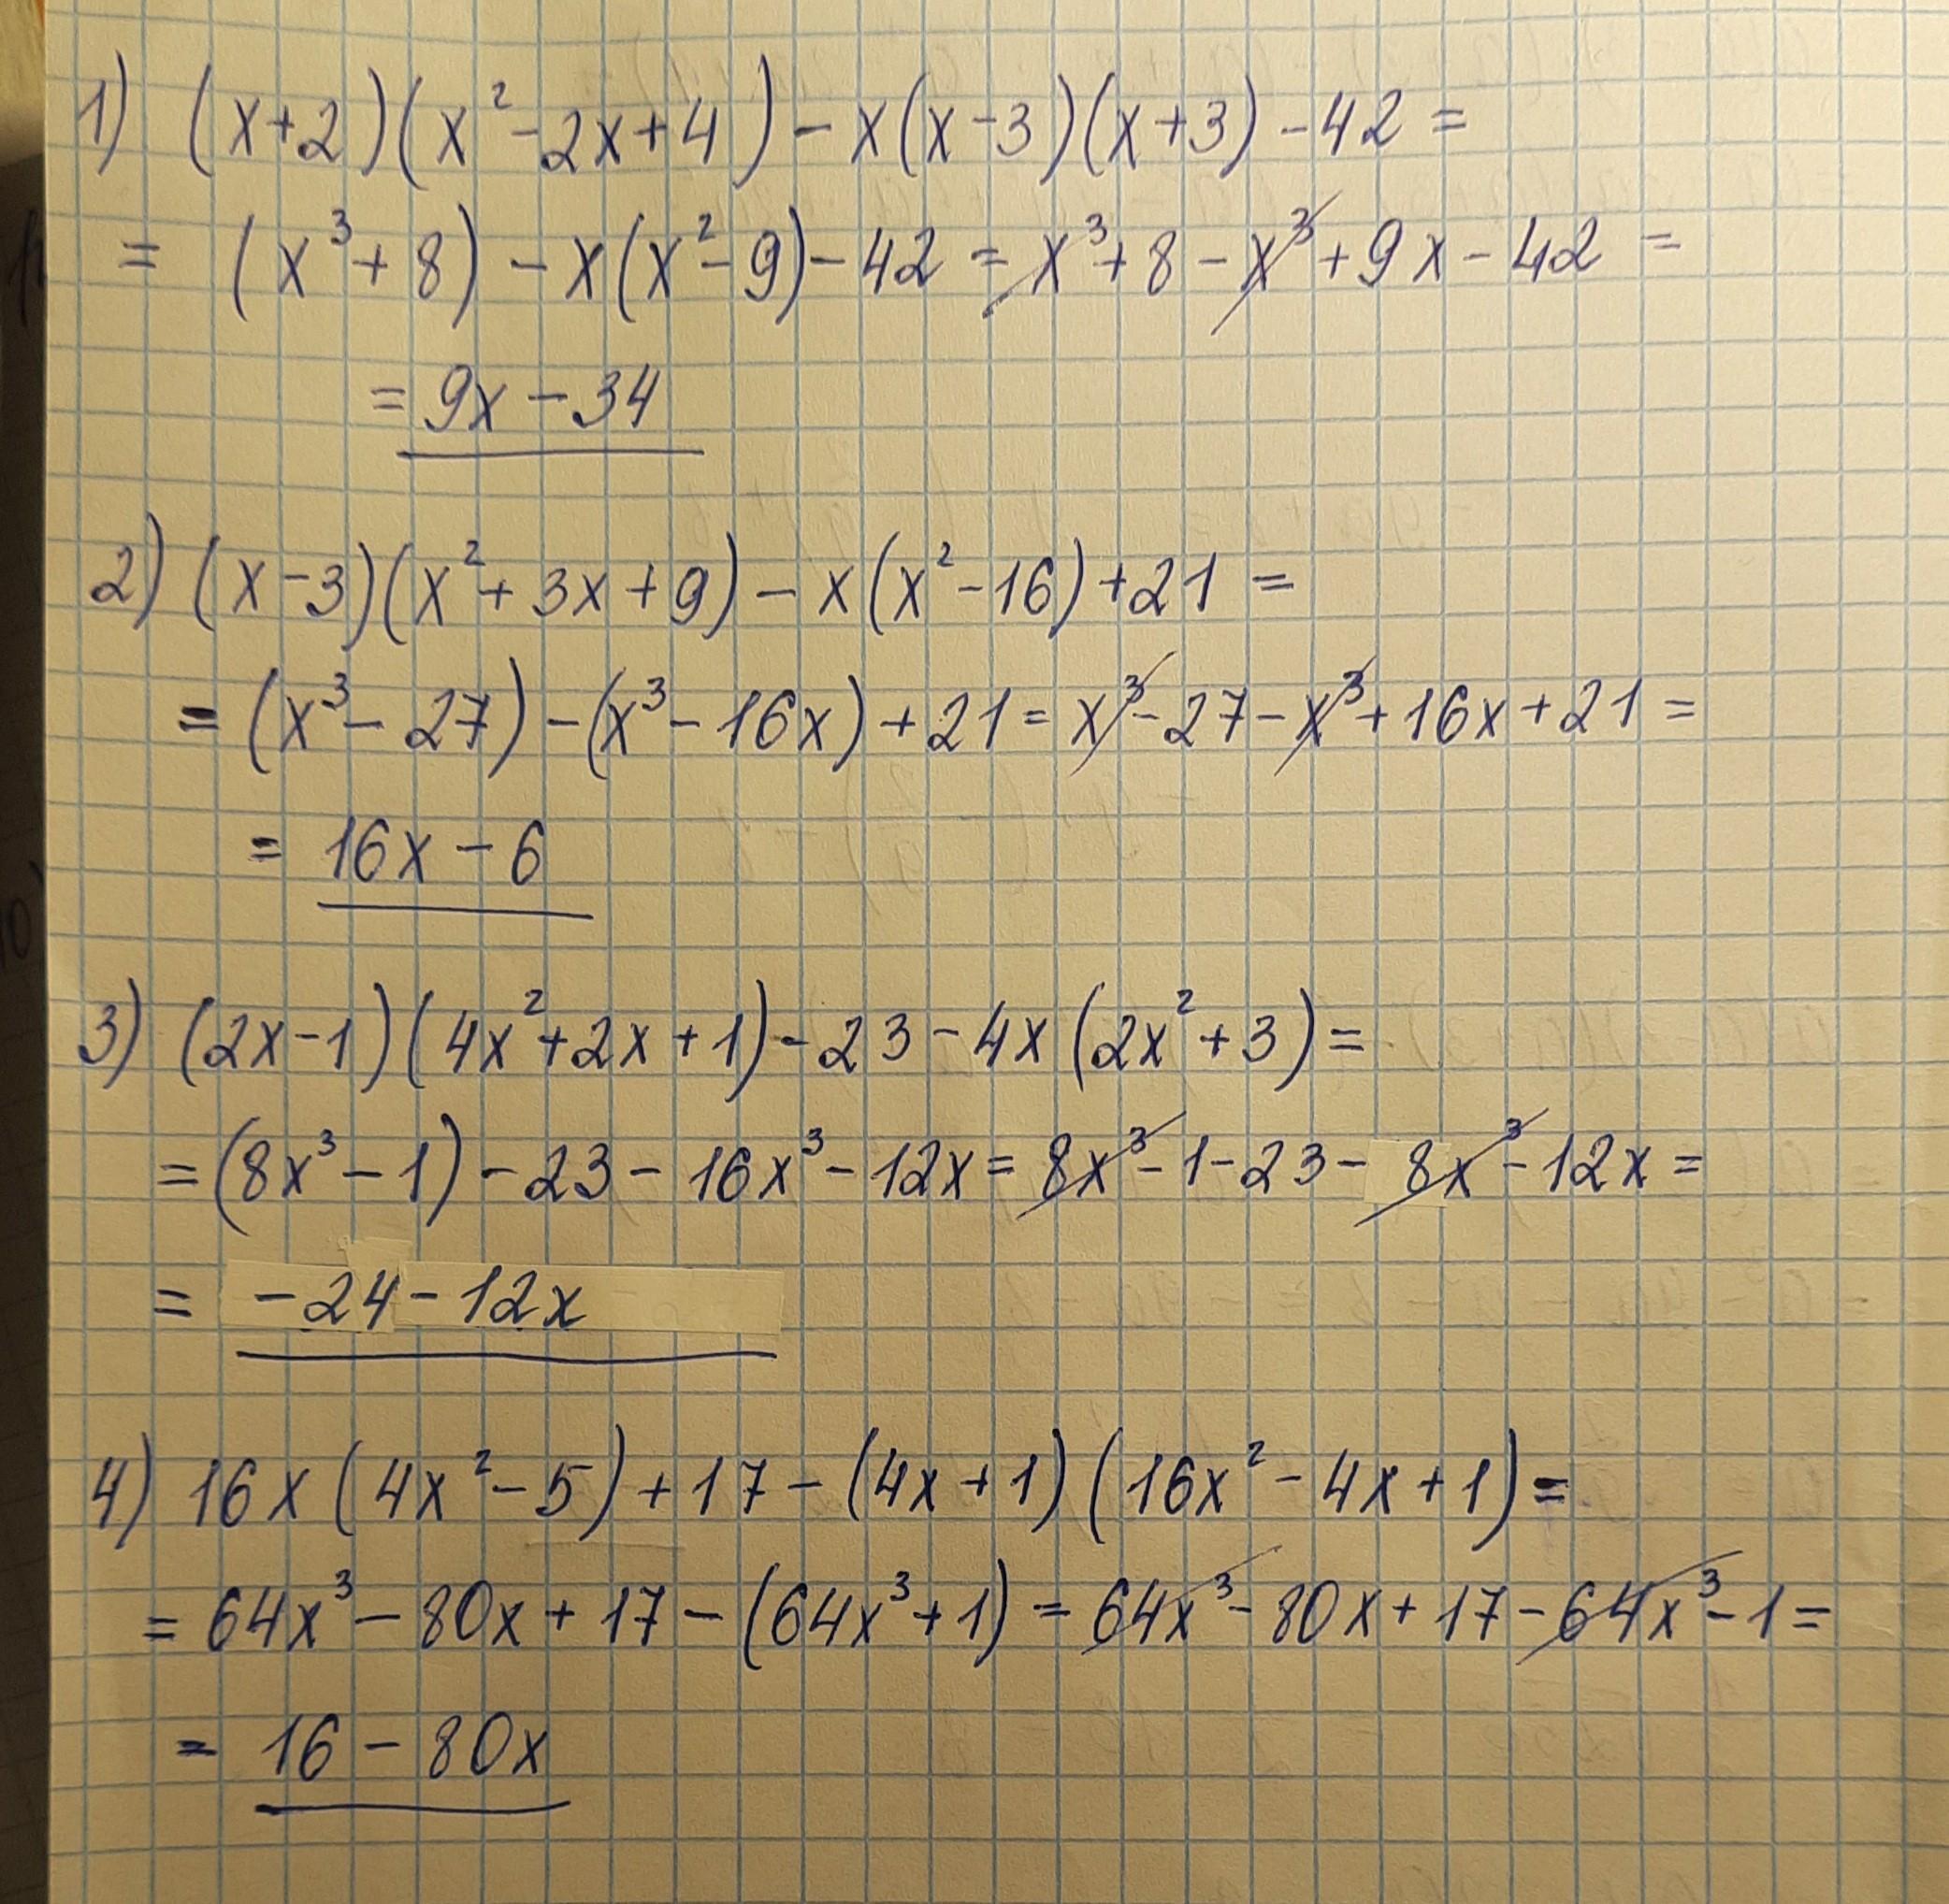 1) (x+2)(x²-2x+4)-x(x-3)(x+3)-42=
= (x³+8)-x(x²-9)-42=x³+8-x³+9x-42=
=9x-34
2) (x-3)(x²+3x+9)-x(x²-16)+21=
=(x³-27)-(x³-16x)+21=x³-27-x³+16x+21=
= 16x-6
3) (2x-1)(4x²+2x+1)-23-4x(2x²+3)=
=(8x³-1)-23-16x³-12x=8x³-1-23-8x³-12x=
= -24-12x
4) 16x(4x²-5)+17-(4x+1)(16x²-4x+1)=
=64x³-80x+17-(64x³+1)=64x³-80x+17-64x³-1=
= 16-80x